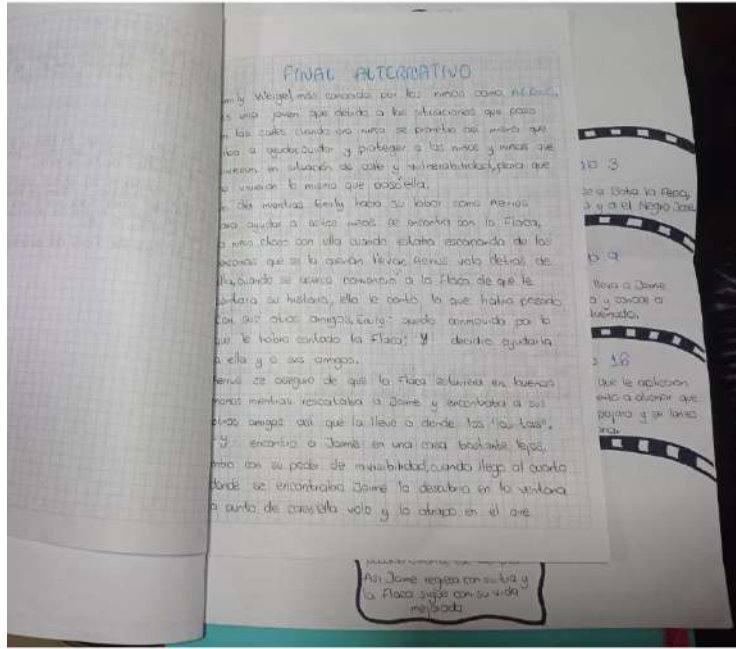 FINAL ALTERNATIVO
mily Weigel, más conocida por los niños como AERIUS,
s una joven que debido a las situaciones que paso
n las calles cuando era niña se prometio asi misma que
iba a ayudar, cuidar y proteger a los niños y niñas que
en situación de calle y vulnerabilidad, para que
no vivieran lo mismo que paso ella.
dia mientras Emily hacia su labor como Aerius
para ayudar a estos niños se encontro con la Flaca,
a niña choco con ella cuando estaba escapando de las
personas que se la querian llevar, Aerius volo detras de
ella, cuando se convencio a la Flaca de que le
contara su historia, ella le conto lo que habia pasado
con sus otros amigos, Emily quedo conmovida por lo
que le habia contado la Flaca; Y decidio ayudarla
a ella y a sus amigos.
Aerius se aseguro de que la Flaca estuviera en buenas
manos mientras rescataba a Jaime y encontraba a sus
otros amigos asi que la llevo a donde las "las tais".
Y encontro a Jaime en una casa bastante lejos,
entro con su poder de invisibilidad, cuando llego al cuarto
donde se encontraba Jaime lo descubrio en la ventana
a punto de caerse, ella volo y lo atrapo en el aire
3
Bota, la Pepa,
y a el Negro Jose
9
lleva a Jaime
a y conoce a
16
que le aplicaron
que
pajaro y se lanzo
Asi Jaime regresa con su tia y
la Flaca sigue con su vida
mejorada